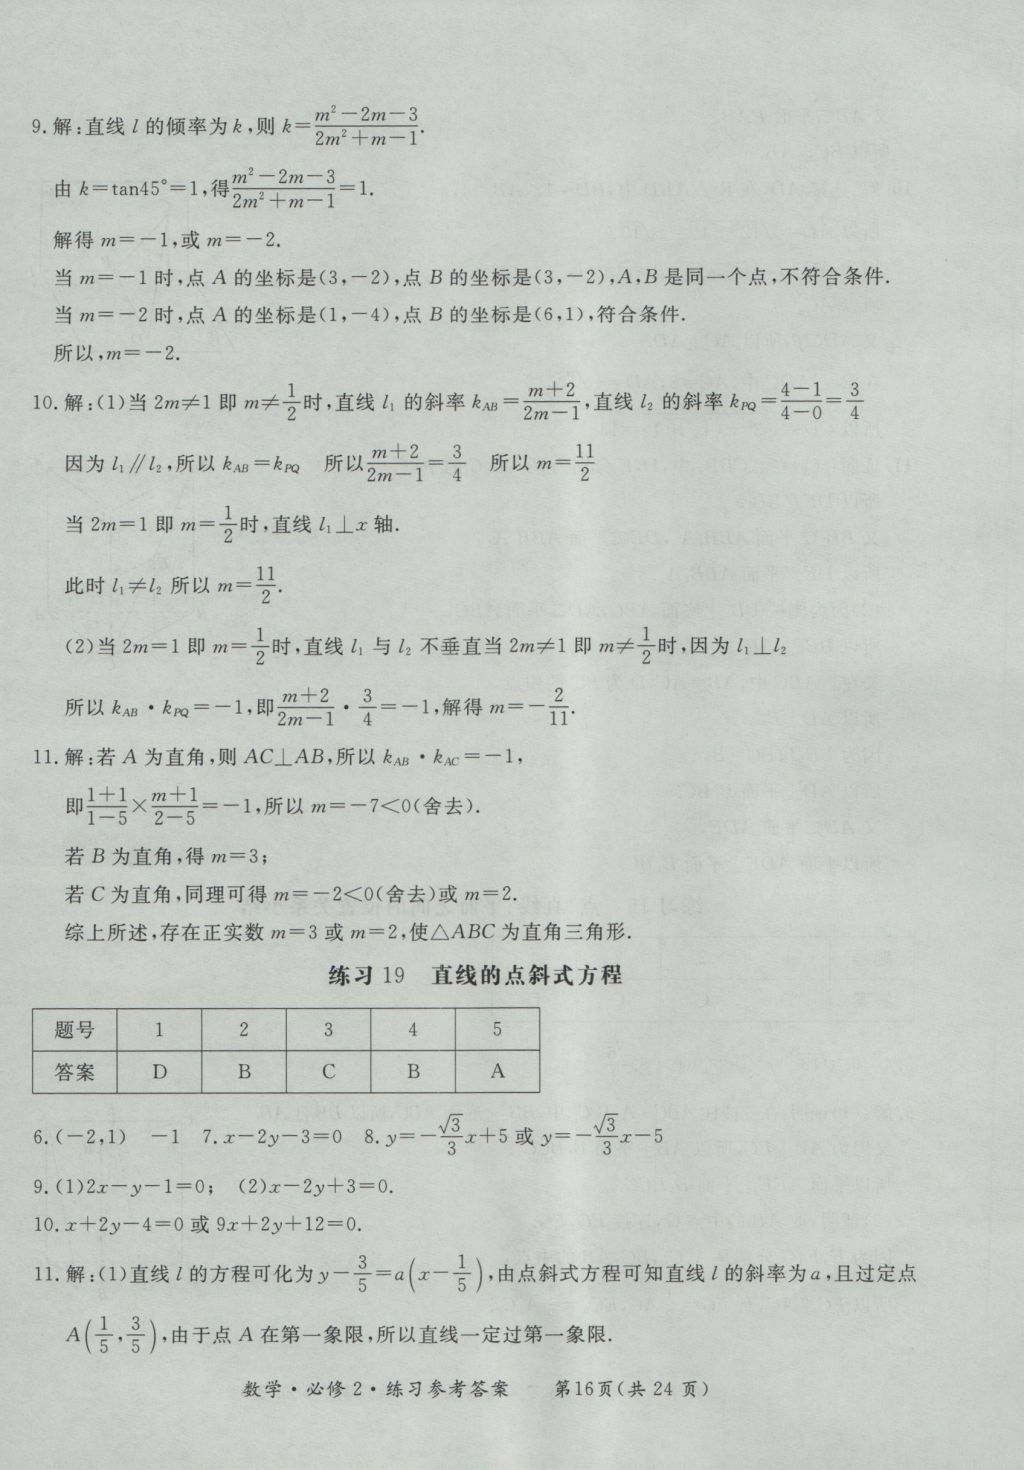 9. 解:直线 l 的倾率为 k,则 k=(m²-2m-3)/(2m²+m-1).
由 k=tan45°=1,得(m²-2m-3)/(2m²+m-1)=1.
解得 m=-1,或 m=-2.
当 m=-1 时,点 A 的坐标是(3,-2),点 B 的坐标是(3,-2),A,B 是同一个点,不符合条件.
当 m=-2 时,点 A 的坐标是(1,-4),点 B 的坐标是(6,1),符合条件.
所以,m=-2.
10. 解:(1)当 2m≠1 即 m≠1/2时,直线 l₁ 的斜率 k_AB=(m+2)/(2m-1),直线 l₂ 的斜率 k_PQ=(4-1)/(4-0)=3/4
因为 l₁∥l₂,所以 k_AB=k_PQ 所以(m+2)/(2m-1)=3/4 所以 m=11/2
当 2m=1 即 m=1/2时,直线 l₁⊥x 轴.
此时 l₁≠l₂ 所以 m=11/2.
(2)当 2m=1 即 m=1/2时,直线 l₁ 与 l₂ 不垂直当 2m≠1 即 m≠1/2时,因为 l₁⊥l₂
所以 k_AB·k_PQ=-1,即(m+2)/(2m-1)·3/4=-1,解得 m=-2/11.
11. 解:若 A 为直角,则 AC⊥AB,所以 k_AB·k_AC=-1,
即(1+1)/(1-5)×(m+1)/(2-5)=-1,所以 m=-7<0(舍去).
若 B 为直角,得 m=3;
若 C 为直角,同理可得 m=-2<0(舍去)或 m=2.
综上所述,存在正实数 m=3 或 m=2,使△ABC 为直角三角形.
练习 19 直线的点斜式方程
题号 1 2 3 4 5
答案 D B C B A
6. (-2,1) -1 7. x-2y-3=0 8. y=-(√3/3)x+5 或 y=-(√3/3)x-5
9. (1)2x-y-1=0; (2)x-2y+3=0.
10. x+2y-4=0 或 9x+2y+12=0.
11. 解:(1)直线 l 的方程可化为 y-3/5=a(x-1/5),由点斜式方程可知直线 l 的斜率为 a,且过定点
A(1/5,3/5),由于点 A 在第一象限,所以直线一定过第一象限.
数学·必修 2·练习参考答案 第16页(共 24 页)